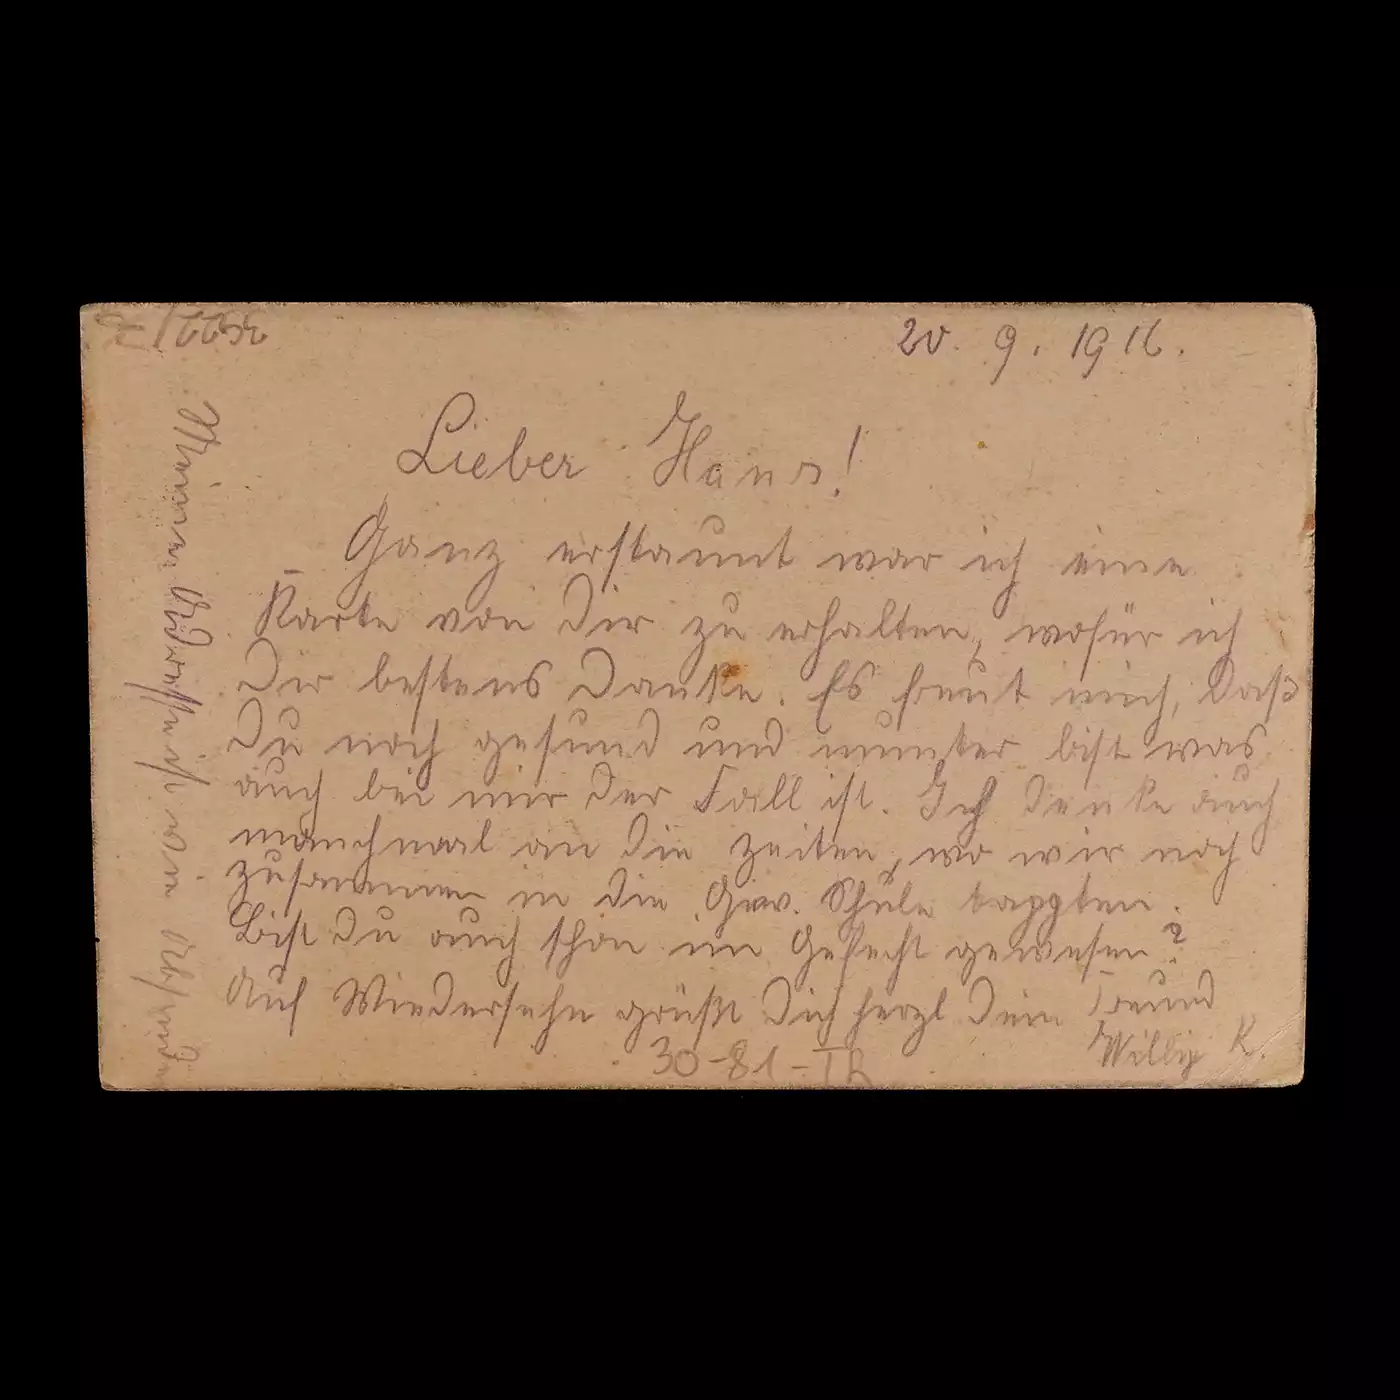 20. 9. 1916.
Lieber Hans!
Ganz erstaunt war ich eine
Karte von Dir zu erhalten, wofür ich
Dir bestens danke. Es freut mich, daß
Du noch gesund und munter bist was
auch bei mir der Fall ist. Ich denke auch
manchmal an die Zeiten, wo wir noch
zusammen in die Gew. Schule tappten.
Bist Du auch schon im Gefecht gewesen?
Auf Wiedersehn grüßt Dich herzl Dein Freund
Willy K.
30-81-IR
Meine Adresse ist wie Absender
3522/